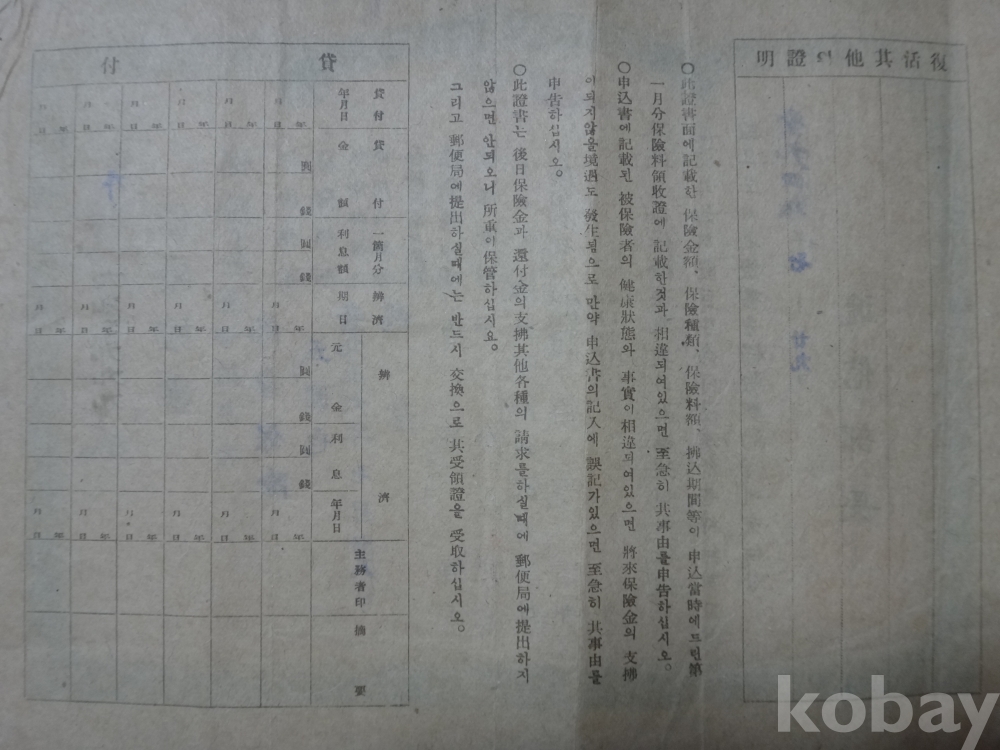 復活其他의證明
○此證書面에記載한 保險金額、保險種類、保險料額、拂込期間等이 申込當時에드린第
一月分保險料領收證에 記載한것과 相違되여있으면 至急히 其事由를申告하십시오。
○申込書에記載된 被保險者의 健康狀態와 事實이相違되여있으면 將來保險金의 支拂
이되지않을境遇도 發生됨으로 만약 申込書의記入에 誤記가있으면 至急히 其事由를
申告하십시오。
○此證書는 後日保險金과 還付金의支拂其他各種의 請求를하실때에 郵便局에提出하지
않으면 안되오니 所重이保管하십시요。
그리고 郵便局에提出하실때에는 반드시 交換으로 其受領證을 受取하십시오。
貸付
貸付年月日
貸付金額
一箇月分利息額
辨濟期日
辨濟
元金
利息
年月日
主務者印
摘要
年月日 年月日 年月日 年月日 年月日
圓錢
圓錢
年月日 年月日 年月日 年月日 年月日
圓錢
圓錢
年月日 年月日 年月日 年月日 年月日
kobay